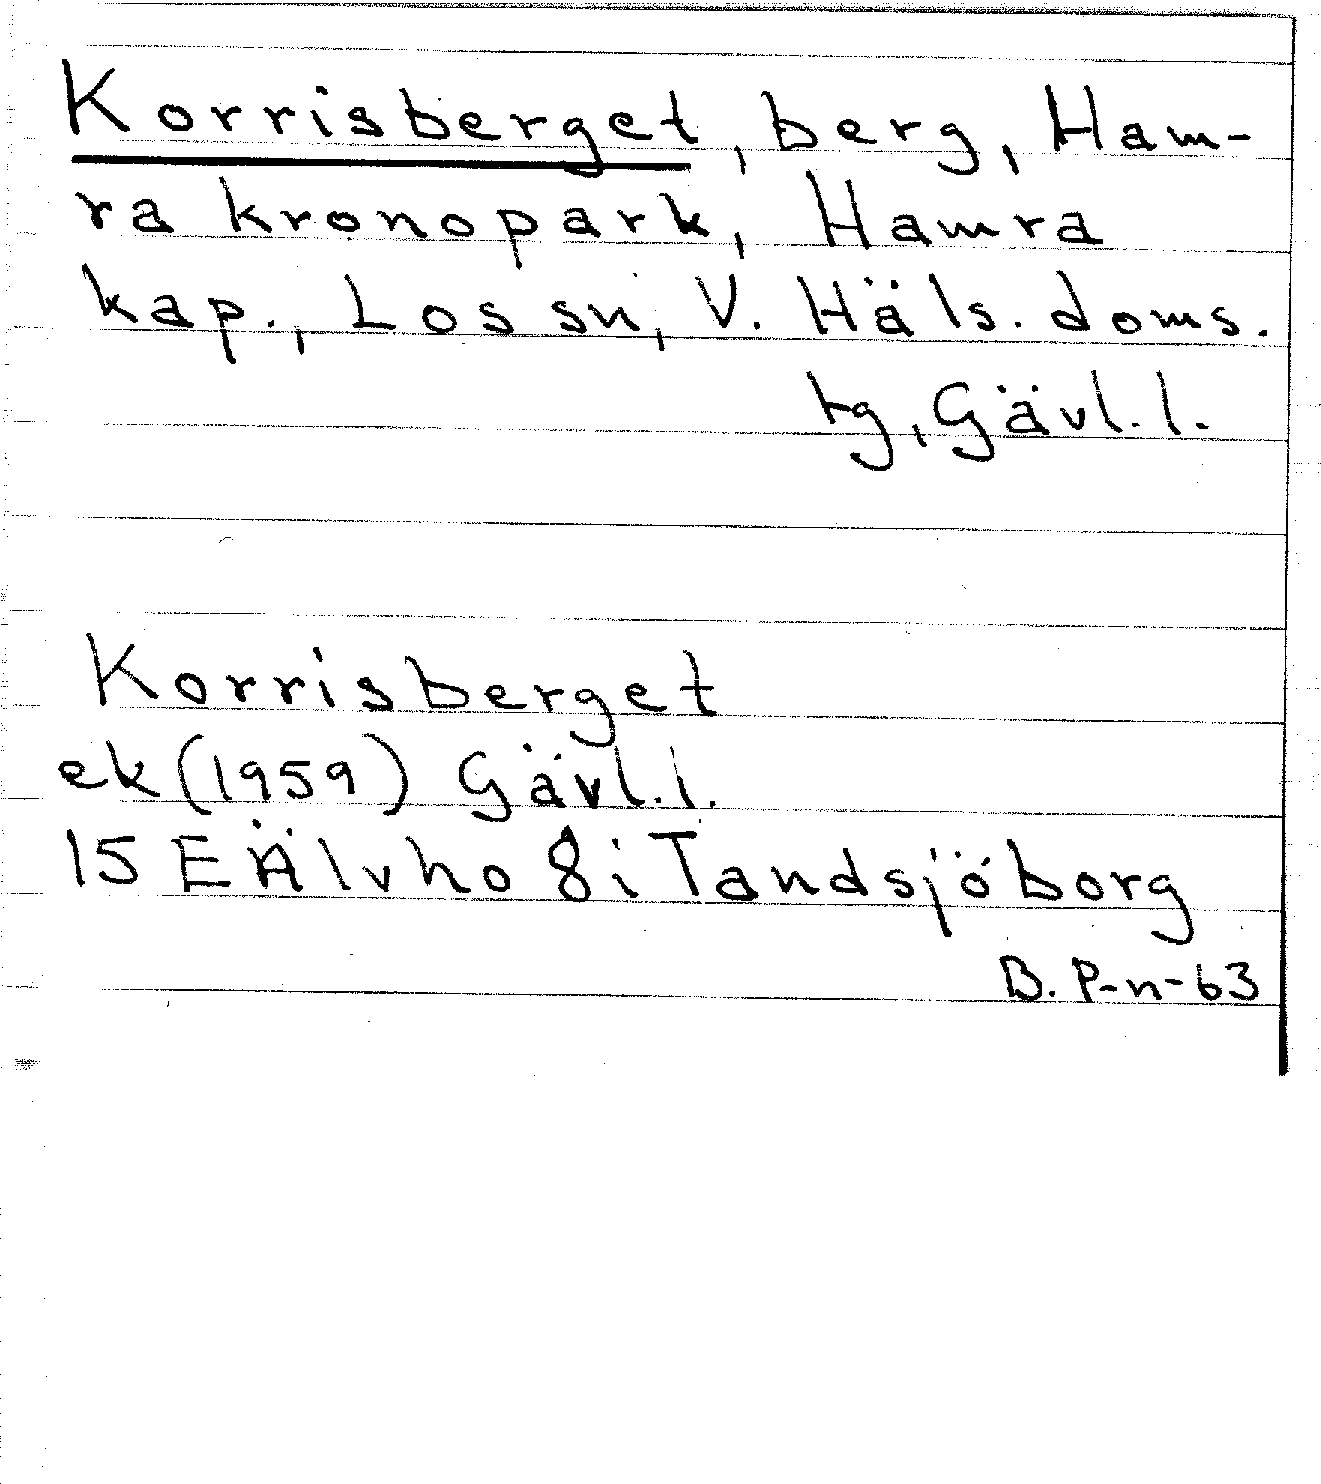 Korrisberget, berg, Ham-
ra kronopark, Hamra
kap., Los sn, V. Häls. doms.
tg, Gävl. l.
Korrisberget
ek (1959) Gävl. l.
15 E Älvho 8 i Tandsjöborg
B. P-n-63